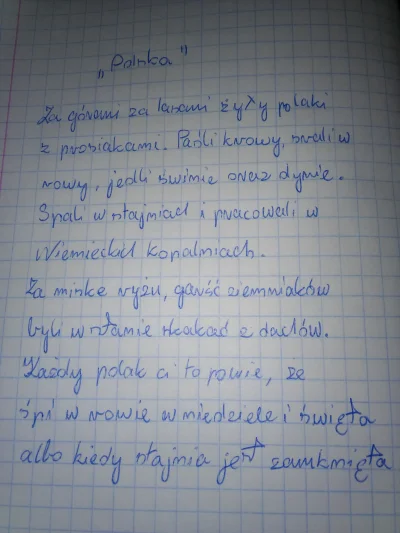 „Polska"
Za górami za lasami żyły polaki
z prosiakami. Paśli krowy, srali w
rowy, jedli świnie oraz dynie.
Spali w stajniach i pracowali w
Niemieckich kopalniach.
Za miske ryżu, garść ziemniaków
byli w stanie skakać z dachów.
Każdy polak ci to powie, że
śpi w rowie w niedziele i święta
albo kiedy stajnia jest zamknięta